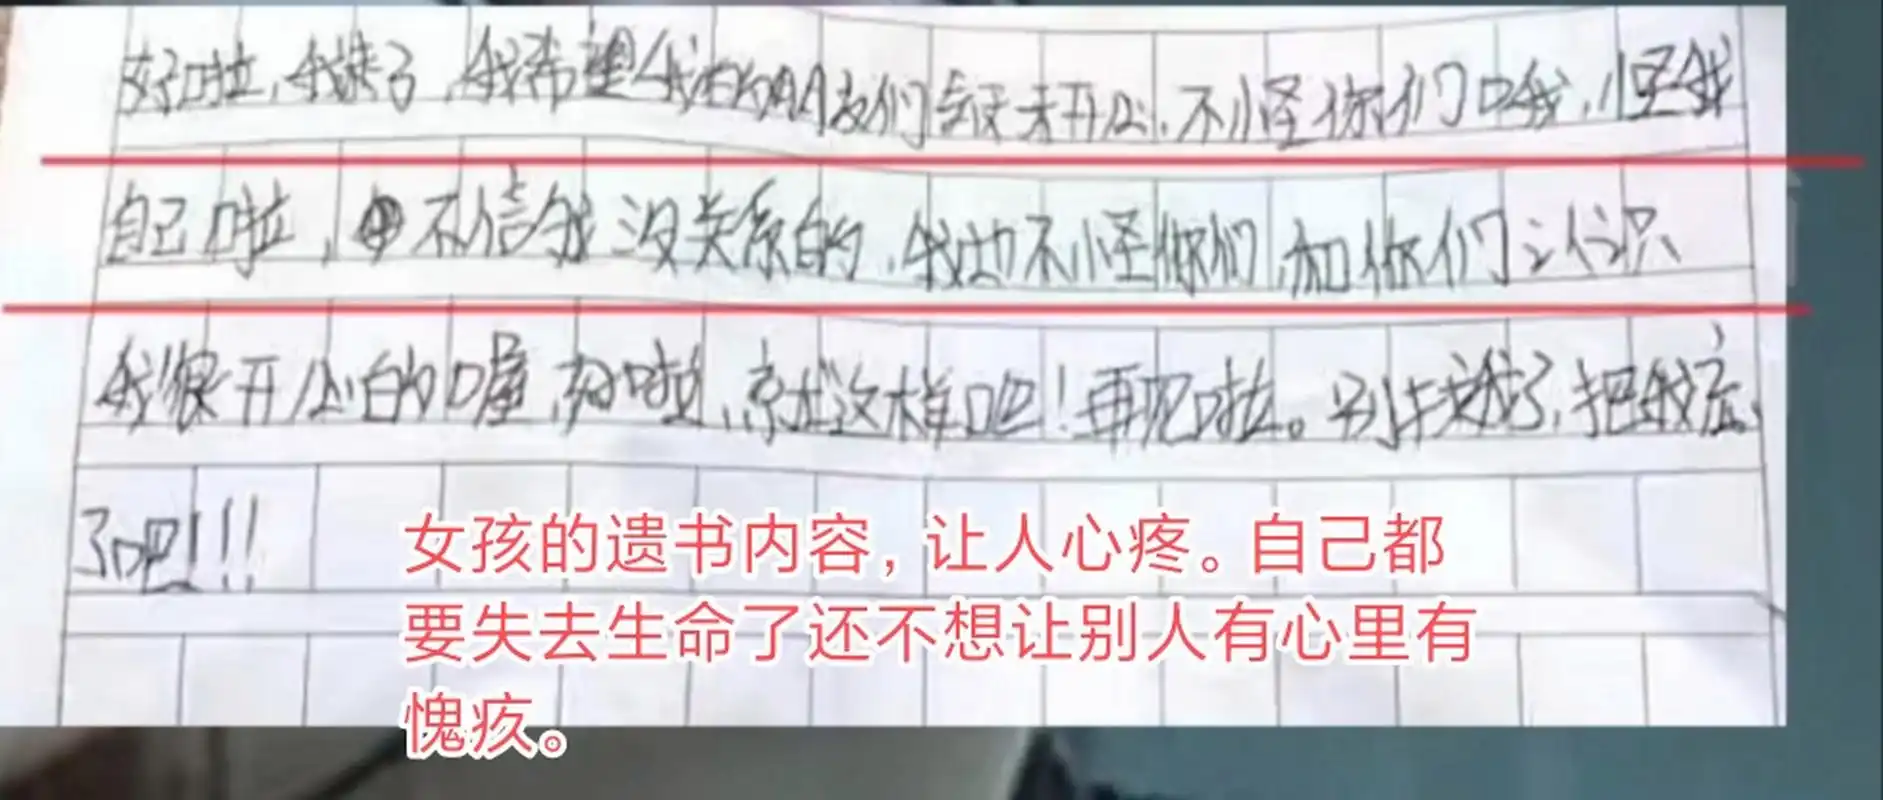 好啦，我走了，我希望我的朋友们每天开心，不怪你们哦，怪我
自己啦，不信我没关系的，我也不怪你们，和你们认识
我很开心的喔，好啦，就这样吧！再见啦。别找我了，把我忘
了吧！！！
女孩的遗书内容，让人心疼。自己都
要失去生命了还不想让别人有心里有
愧疚。